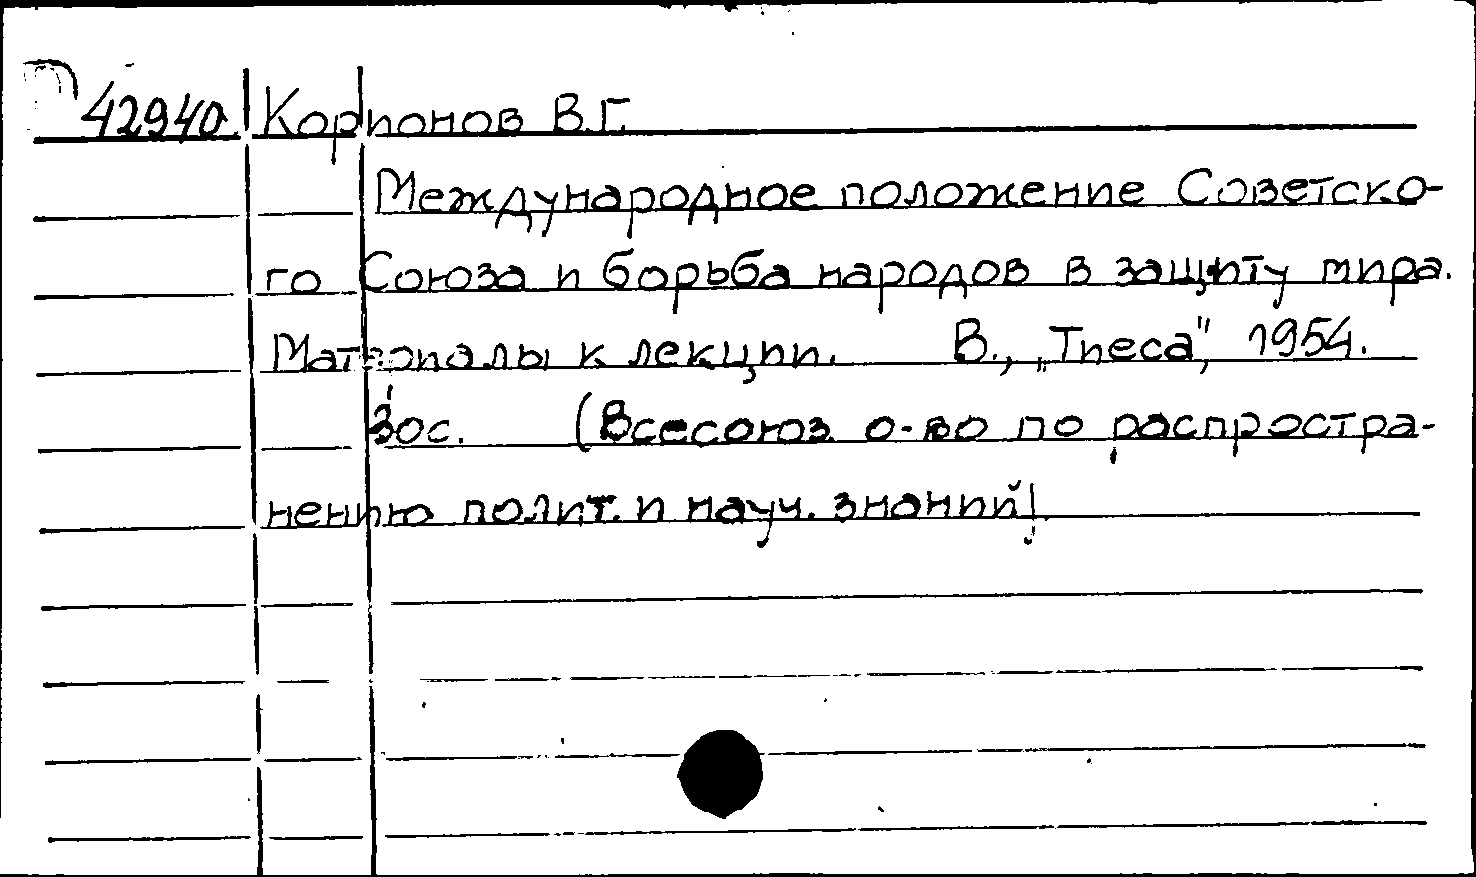 42940. Корионов В.Г.
Международное положение Советско-
го Союза и борьба народов в защиту мира.
Материалы к лекции. В., „Тиеса", 1954.
30с. (Всесоюз. о-во по распростра-
нению полит. и науч. знаний).